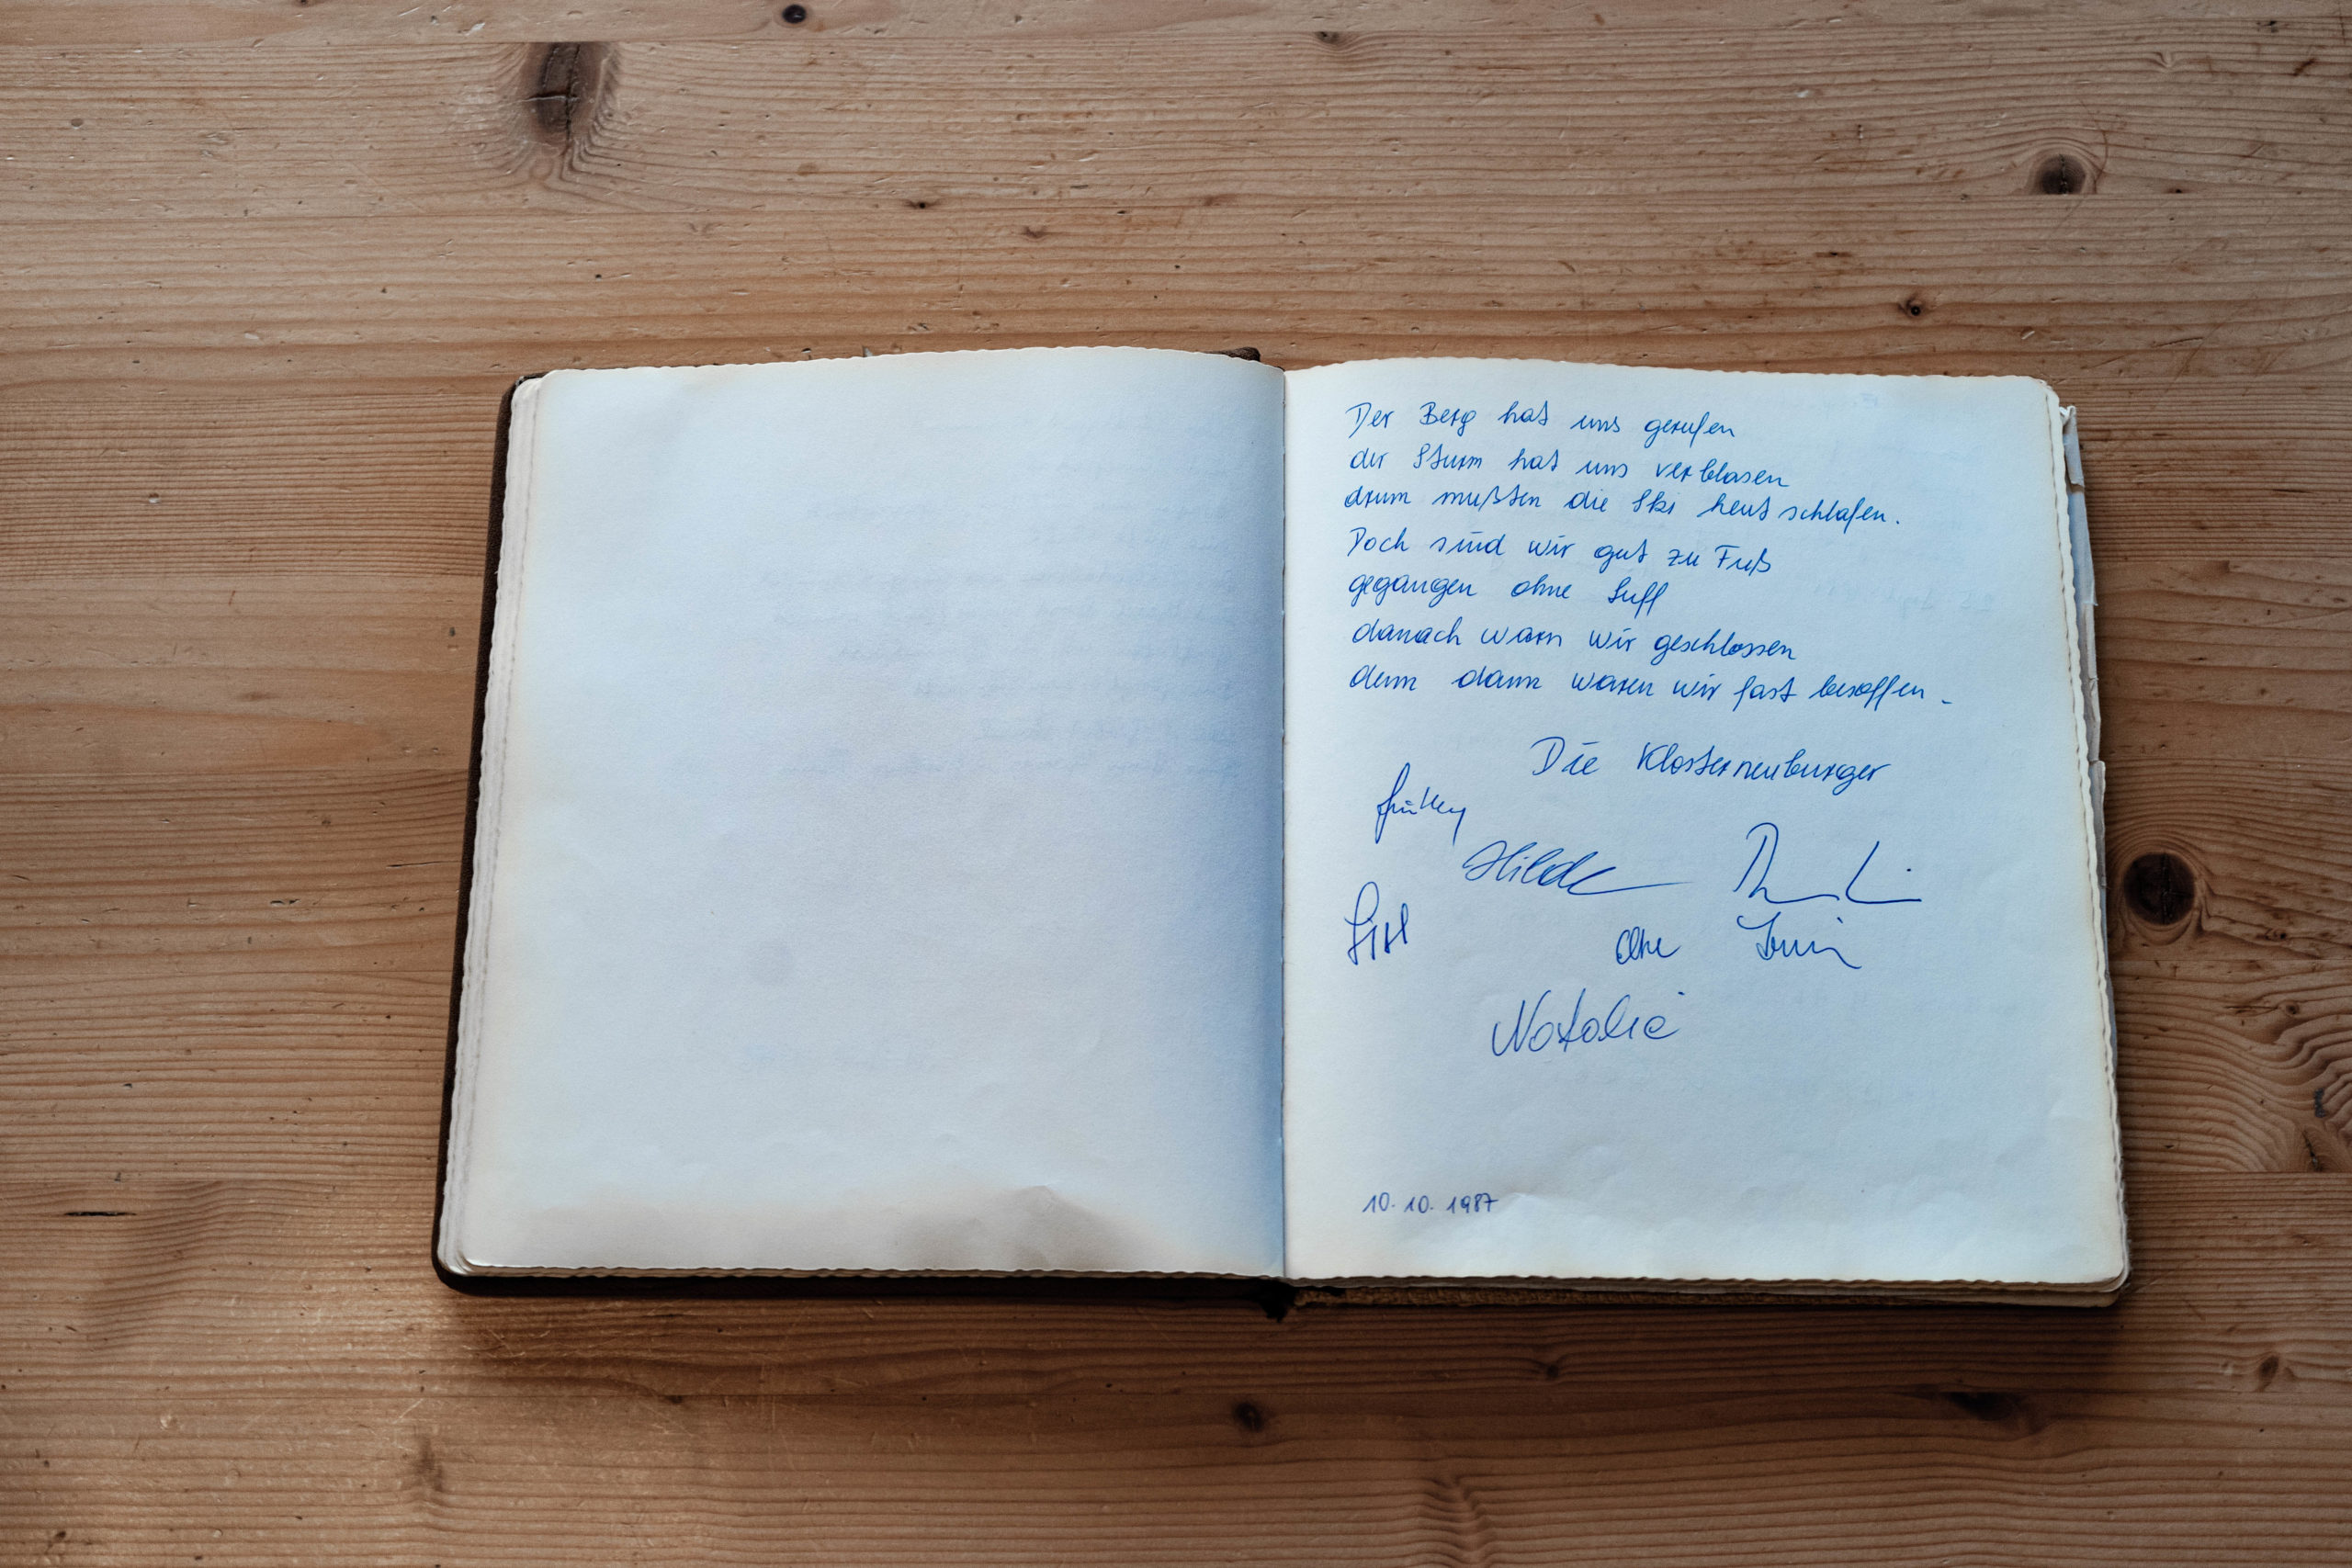 Der Berg hat uns gerufen
der Sturm hat uns verblasen
drum mußten die Ski heut schlafen.
Doch sind wir gut zu Fuß
gegangen ohne Suff
danach warn wir geschlossen
denn dann waren wir fast besoffen.
Die Klosterneuburger
Hilde
Natalie
10.10.1987